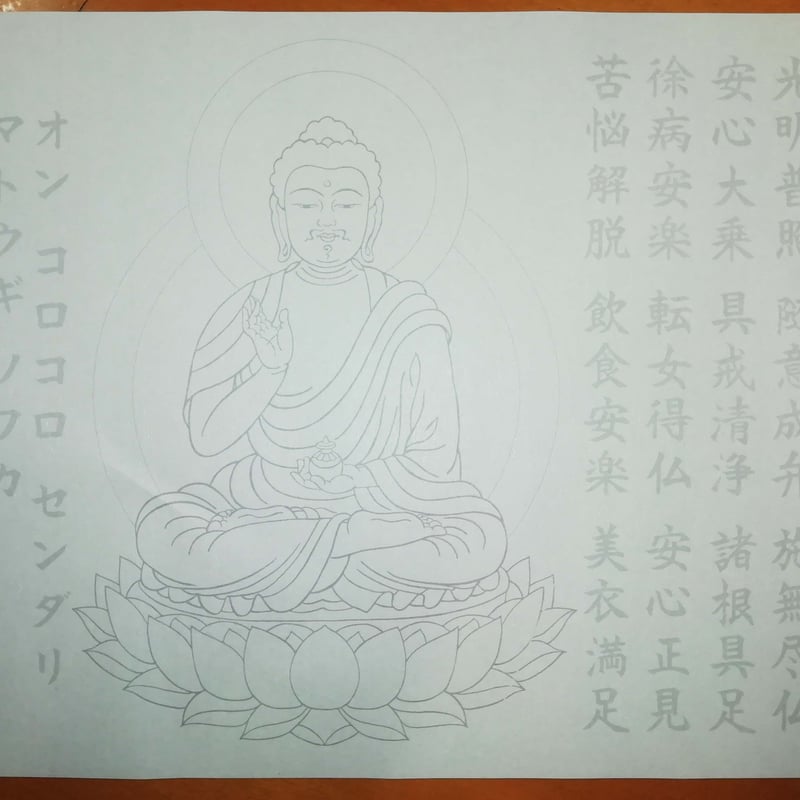 光明普照 随意成弁 施無尽仏
安心大乗 具戒清浄 諸根具足
徐病安楽 転女得仏 安心正見
苦悩解脱 飲食安楽 美衣満足
オン コロコロ センダリ
マトウギ ソワカ